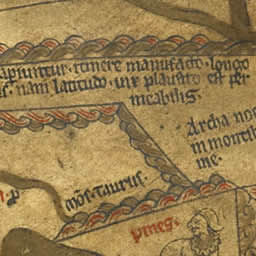 apiuntur · itinere manufacto · longo
is · nam latitudo · uix plaustro est per
meabilis ·
Archa noe
in montib
nie ·
p
mo͠s · taurus ·